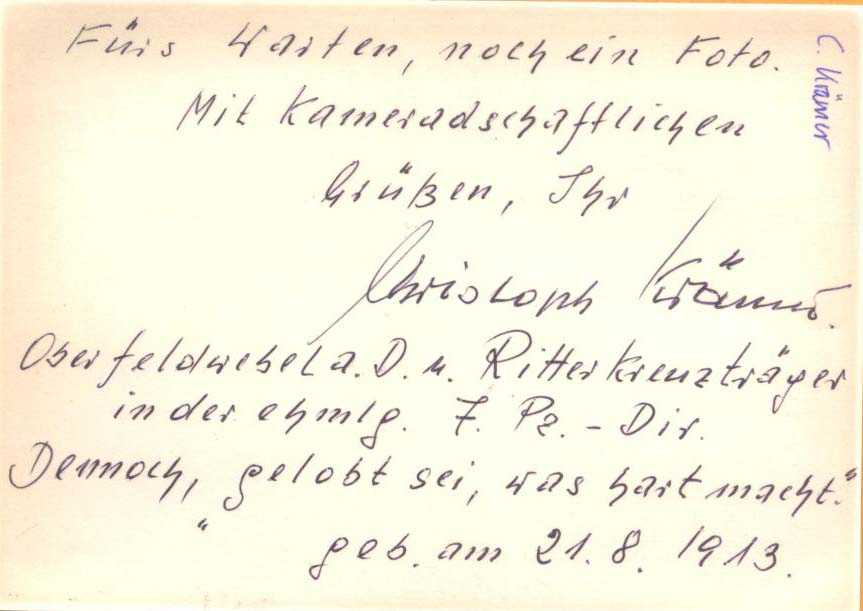 Fürs Warten, noch ein Foto.
Mit Kameradschaftlichen
Grüßen, Ihr
Christoph Krämer.
Oberfeldwebel a. D. u. Ritterkreuzträger
in der ehmlg. 7. Pz. - Div.
Dennoch, „gelobt sei, was hart macht."
geb. am 21. 8. 1913.
C. Krämer